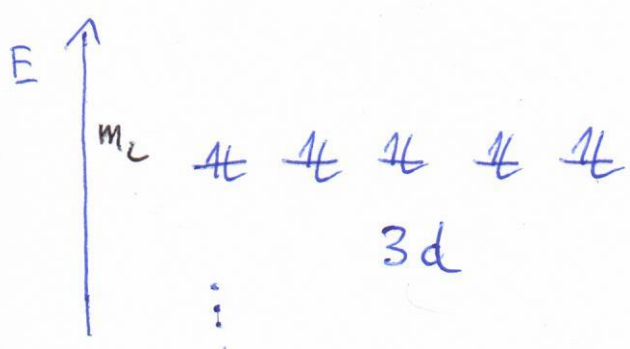 E
m_L
⥮ ⥮ ⥮ ⥮ ⥮
3d
⋮